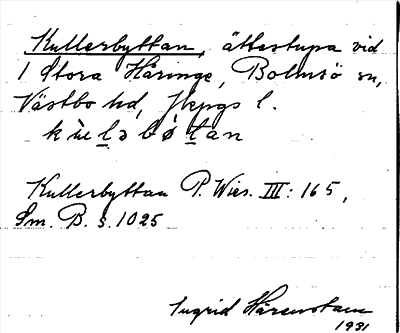 Kullerbyttan, ättestupa vid
1 Stora Häringe, Bolmsö sn,
Västbo hd, Jkpgs l.
Kullerbyttan P. Wies. III: 165,
Sm. B. s. 1025
Ingrid Härenstam
1931